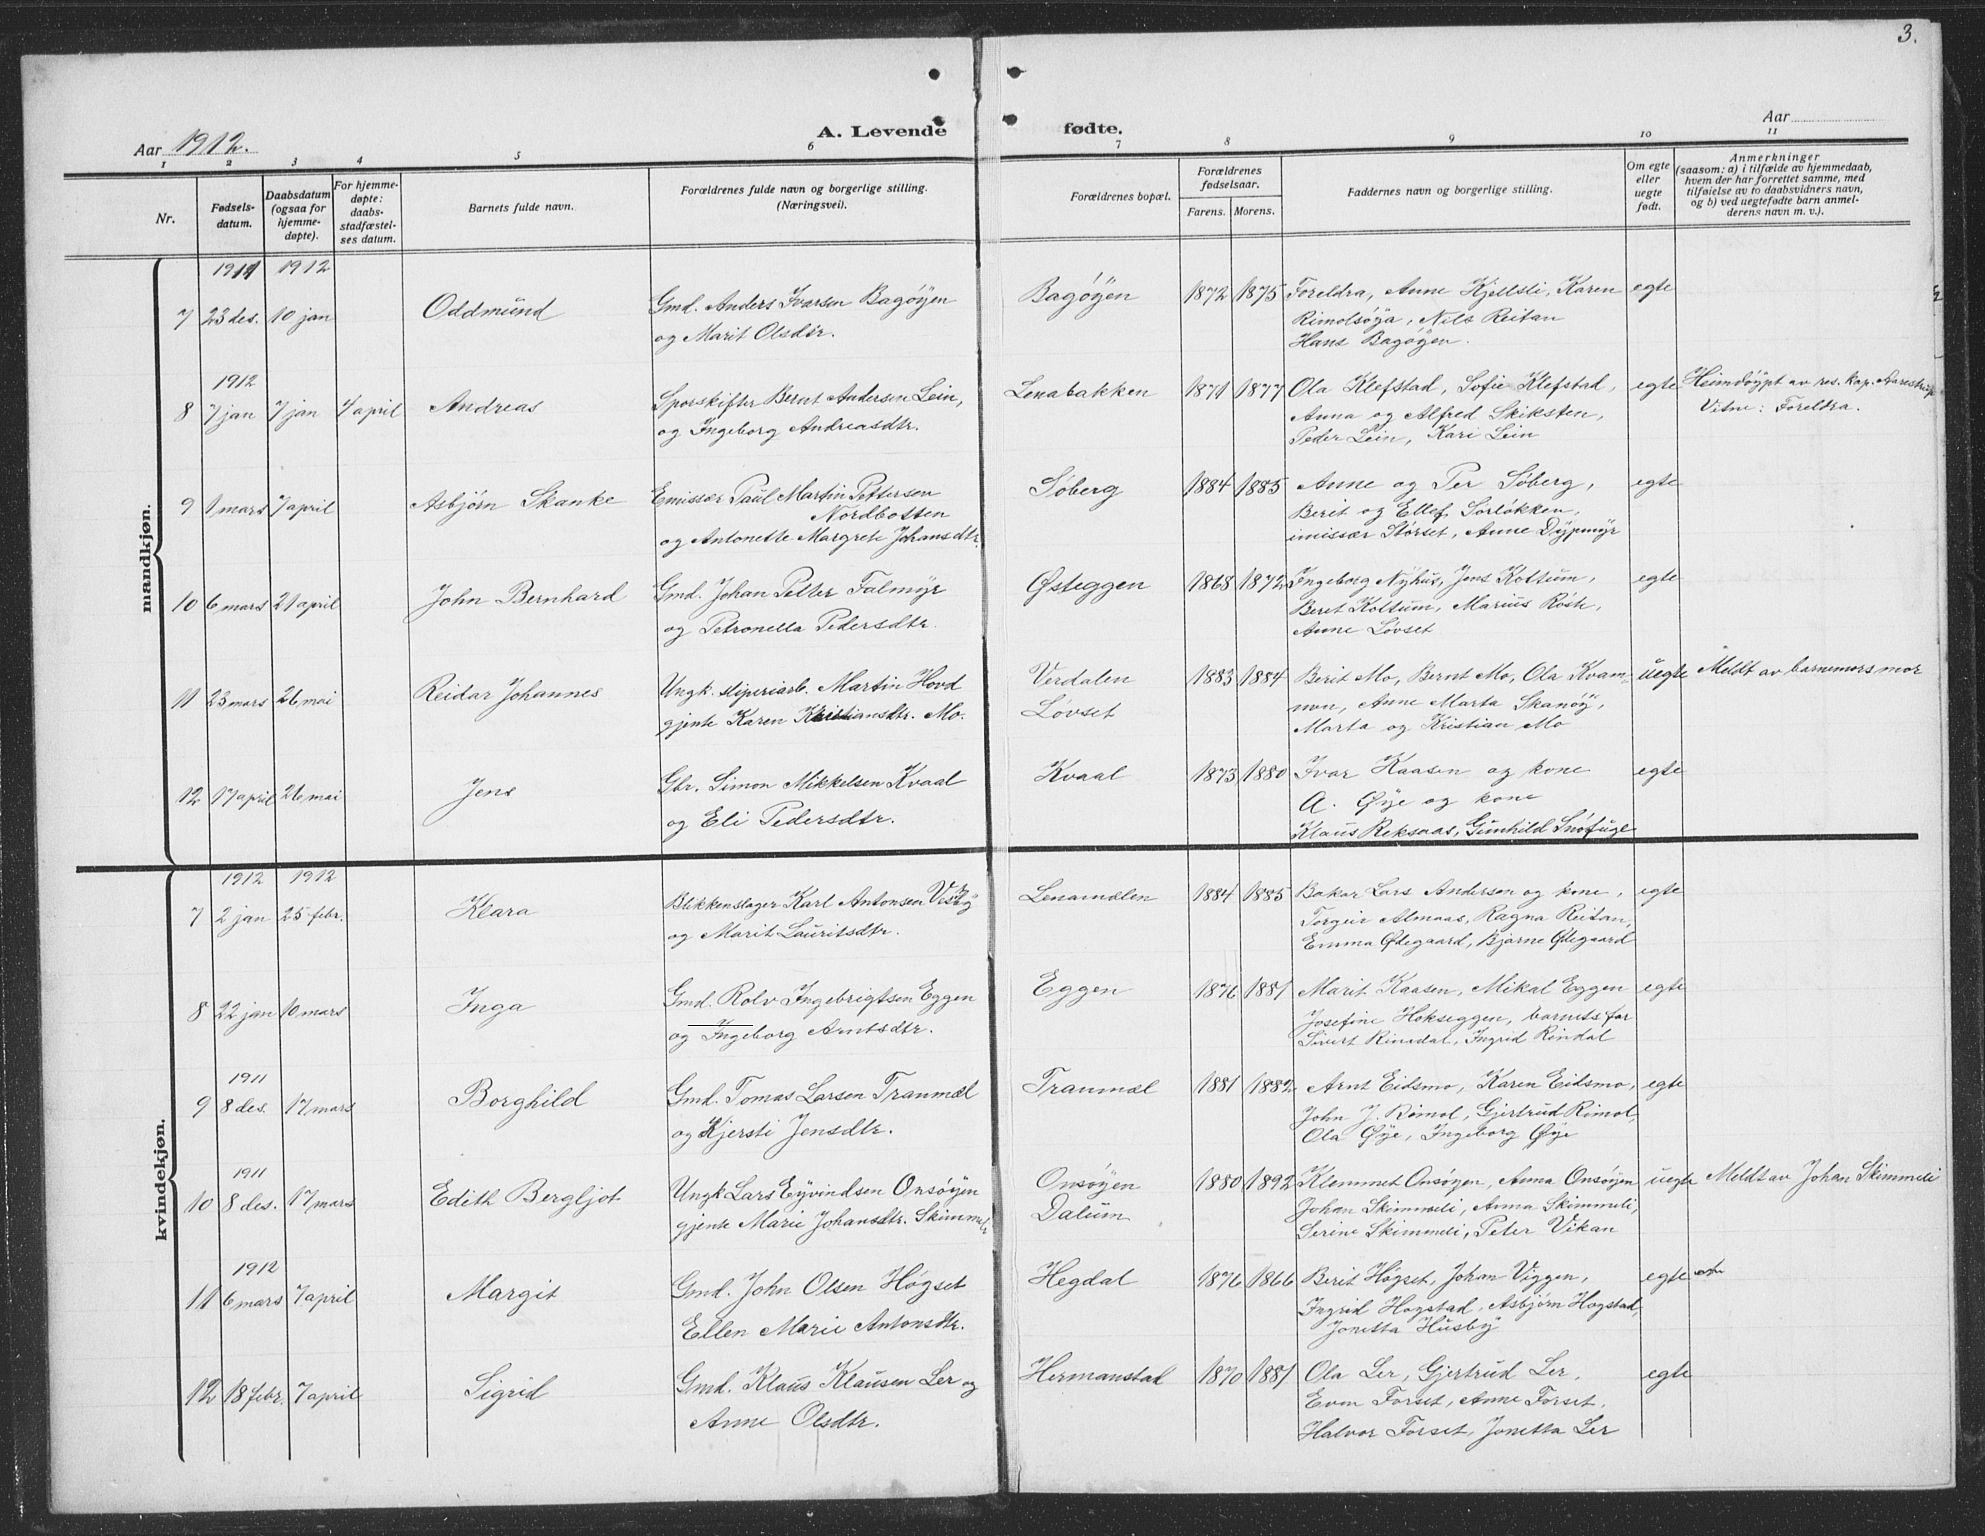 3.
Aar 1912.
A. Levende fødte.
Aar
1 2 3 4 5 6 7 8 9 10 11
Nr.
Fødsels-
datum.
Daabsdatum
(ogsaa for
hjemme-
døpte).
For hjemme-
døpte:
daabs-
stadfæstel-
ses datum.
Barnets fulde navn.
Forældrenes fulde navn og borgerlige stilling.
(Næringsvei).
Forældrenes bopæl.
Forældrenes
fødselsaar.
Farens. Morens.
Faddernes navn og borgerlige stilling.
Om egte
eller
uegte
født.
Anmerkninger
(saasom: a) i tilfælde av hjemmedaab,
hvem der har forrettet samme, med
tilføielse av to daabsvidners navn,
og b) ved uegtefødte barn anmel-
derens navn m. v.).
mandkjøn.
1911 1912
7 23 des. 10 jan Oddmund Gmd. Anders Ivarsen Bagøyen Bagøyen 1872 1875 Foreldra, Anne Kjellsli, Karen egte
og Marit Olsdtr. Rimolsøya, Nils Reitan
Hans Bagøyen.
1912
8 7 jan 7 jan 7 april Andreas Sporskifter Bernt Andersen Lein, Lenabakken 1871 1877 Ola Klefstad, Sofie Klefstad, egte Heimdøypt av res. kap. Aarestrup
og Ingeborg Andreasdtr. Anna og Alfred Skiksten, Vitne: Foreldra.
Peder Lein, Kari Lein
9 1 mars 7 april Asbjørn Skanke Emissær Paul Martin Pettersen Søberg 1884 1885 Anne og Per Søberg, egte
Nordbotten Berit og Ellef Sørløkken,
og Antonette Margrete Johansdtr. emissær Størset, Anne Dypmyr
10 6 mars 21 april John Bernhard Gmd. Johan Petter Falmyr Østeggen 1868 1872 Ingeborg Nyhus, Jens Kottum, egte
og Petronella Pedersdtr. Beret Kottum, Marius Røste,
Anne Løvset
11 23 mars 26 mai Reidar Johannes Ungk. sliperiarb. Martin Hovd Verdalen 1883 1884 Berit Mo, Bernt Mo, Ola Kvam- uegte Meldt av barnemors mor
gjente Karen Kristiansdtr. Mo. Løvset moen, Anne Marta Skanøy,
Marta og Kristian Mo
12 17 april 26 mai Jens Gbr. Simon Mikkelsen Kvaal Kvaal 1873 1880 Ivar Kaasen og kone egte
og Eli Pedersdtr. A. Øye og kone
Klaus Reksaas, Gunhild Snøfugl
kvindekjøn.
1912 1912
7 2 jan 25 febr. Klara Blikkenslager Karl Antonsen Lenamælen 1884 1885 Bakar Lars Andersen og kone, egte
og Marit Lauritsdtr. Torgeir Almaas, Ragna Reitan,
Emma Ødegaard, Bjarne Ødegaard
8 22 jan 10 mars Inga Gmd. Rolv Ingebrigtsen Eggen Eggen 1876 1881 Marit Kaasen, Mikal Eggen egte
og Ingeborg Arntsdtr. Josefine Hokseggen, barnets far
Sivert Rindal, Ingrid Rindal
1911
9 8 des. 17 mars Borghild Gmd. Tomas Larsen Tranmæl Tranmæl 1881 1882 Arnt Eidsmo, Karen Eidsmo, egte
og Kjersti Jensdtr. John J. Rimol, Gjertrud Rimol,
Ola Øye, Ingeborg Øye
1911
10 8 des. 17 mars Edith Bergljot Ungk Lars Eyvindsen Onsøyen Onsøyen 1880 1892 Klemmet Onsøyen, Anna Onsøyen uegte Meldt av Johan Skimmeli
gjente Marie Johansdtr. Skimmeli Dalum Johan Skimmeli, Anna Skimmeli,
Serine Skimmeli, Peter Vikan
1912
11 6 mars 7 april Margit Gmd. John Olsen Høgset Hegdal 1876 1866 Berit Høgset, Johan Viggen, egte
Ellen Marie Antonsdtr. Ingrid Hogstad, Asbjørn Hogstad,
Jonetta Husby
12 18 febr. 7 april Sigrid Gmd. Klaus Klausen Ler og Hermanstad 1870 1881 Ola Ler, Gjertrud Ler, egte
Anne Olsdtr. Even Forset, Anne Forset,
Halvor Forset, Jonetta Ler